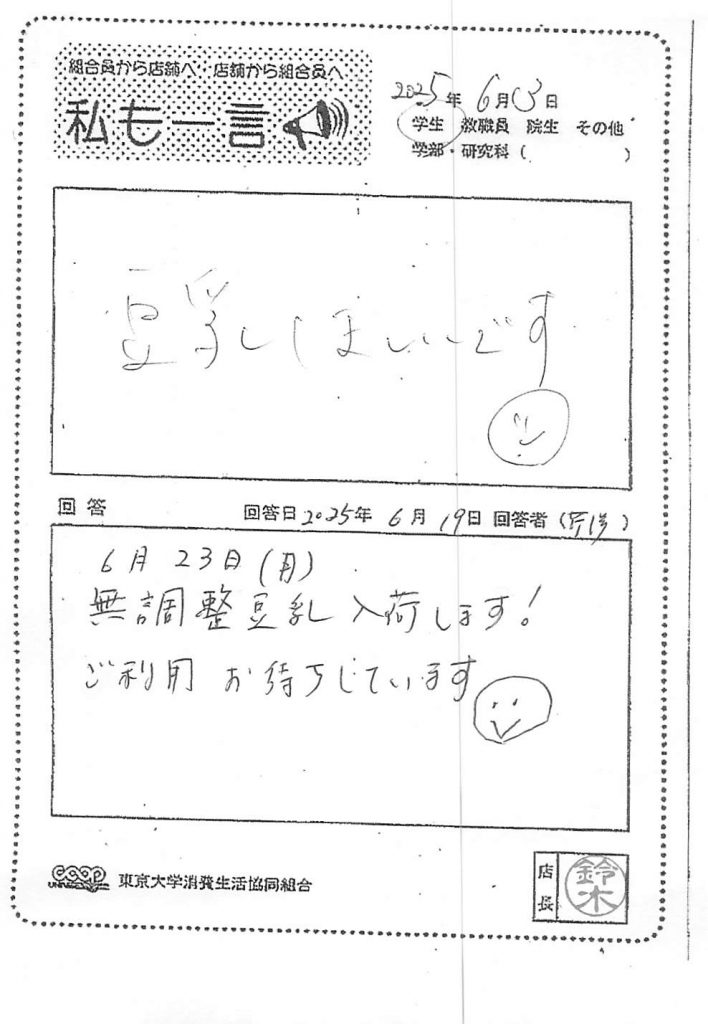 組合員から店舗へ・店舗から組合員へ
私も一言
2025年 6月13日
学生 教職員 院生 その他
学部・研究科 ( )
豆乳しほしいです
回答 回答日2025年 6月19日 回答者 ( )
6月 23日 (月)
無調整豆乳入荷します!
ご利用 お待ちしています
coop 東京大学消費生活協同組合
店長 鈴木